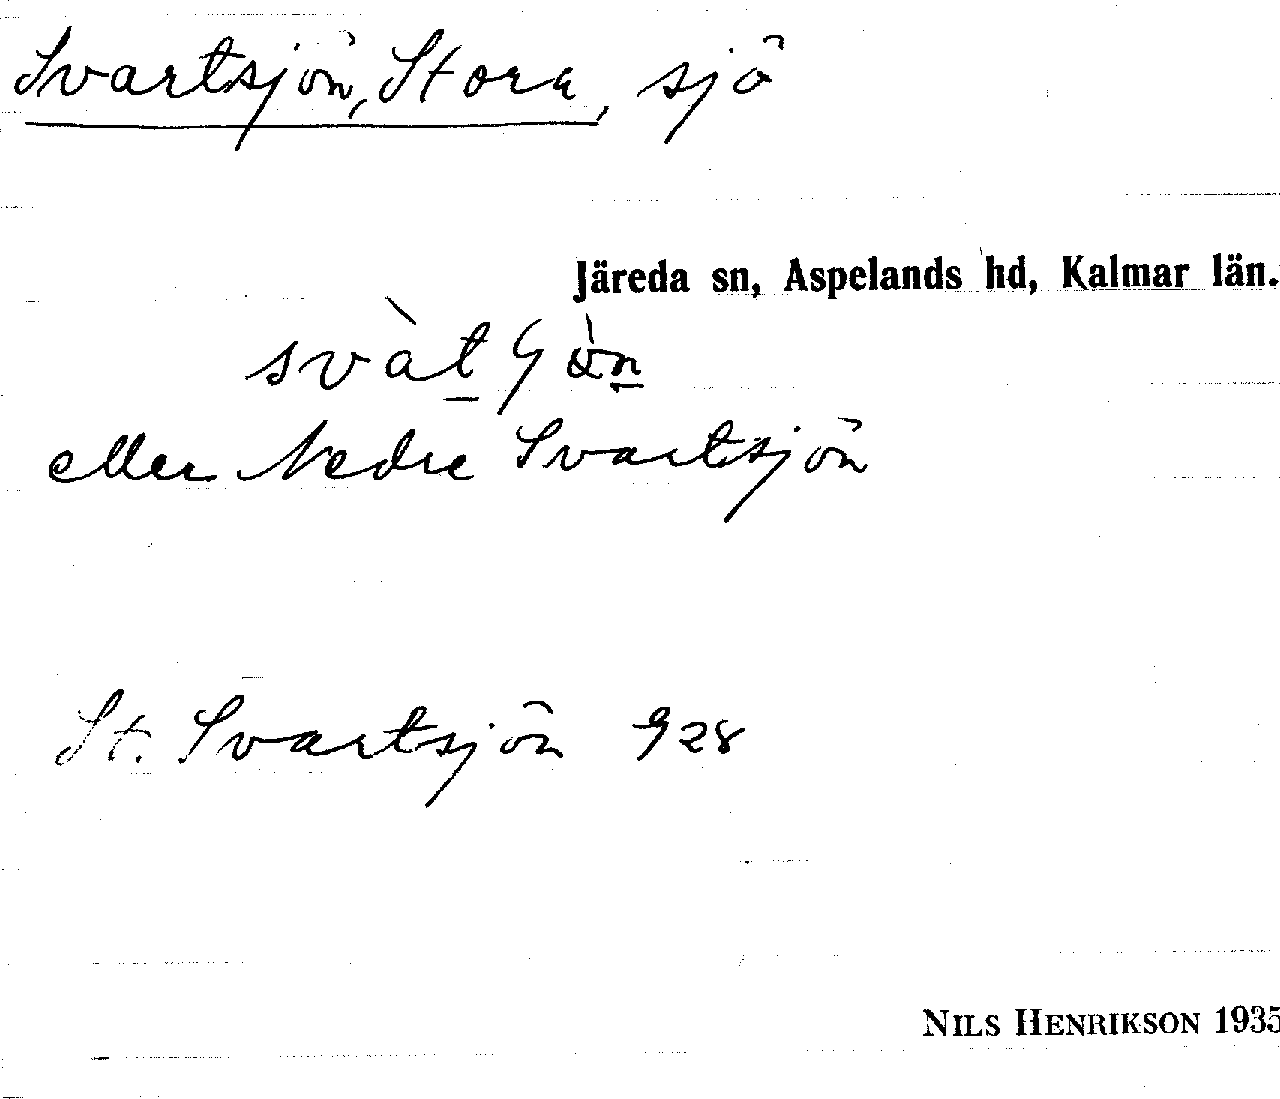 Svartsjön, Stora, sjö
Järeda sn, Aspelands hd, Kalmar län.
eller Nedre Svartsjön
St. Svartsjön 928
NILS HENRIKSON 1935